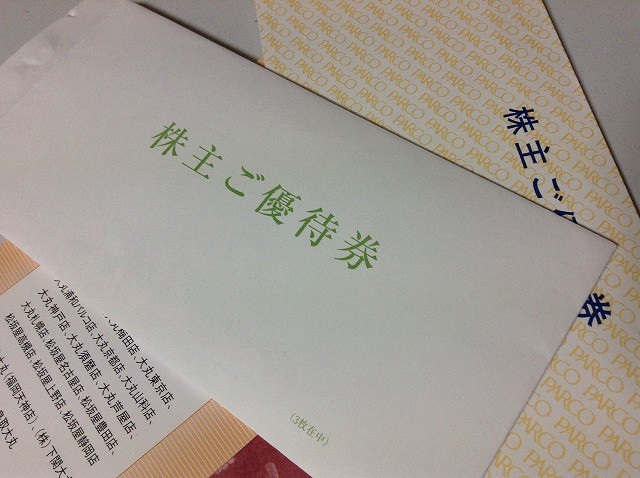 株主ご優待券
(3枚在中)
株主ご
券
PARCO PARCO PARCO PARCO PARCO
大丸梅田店、大丸東京店、
大丸浦和パルコ店、大丸京都店、大丸山科店、
大丸神戸店、大丸須磨店、大丸芦屋店、
大丸札幌店、松坂屋名古屋店、松坂屋豊田店、
松坂屋高槻店、松坂屋上野店、松坂屋静岡店
(福岡天神店)、(株)下関大
鳥取大丸